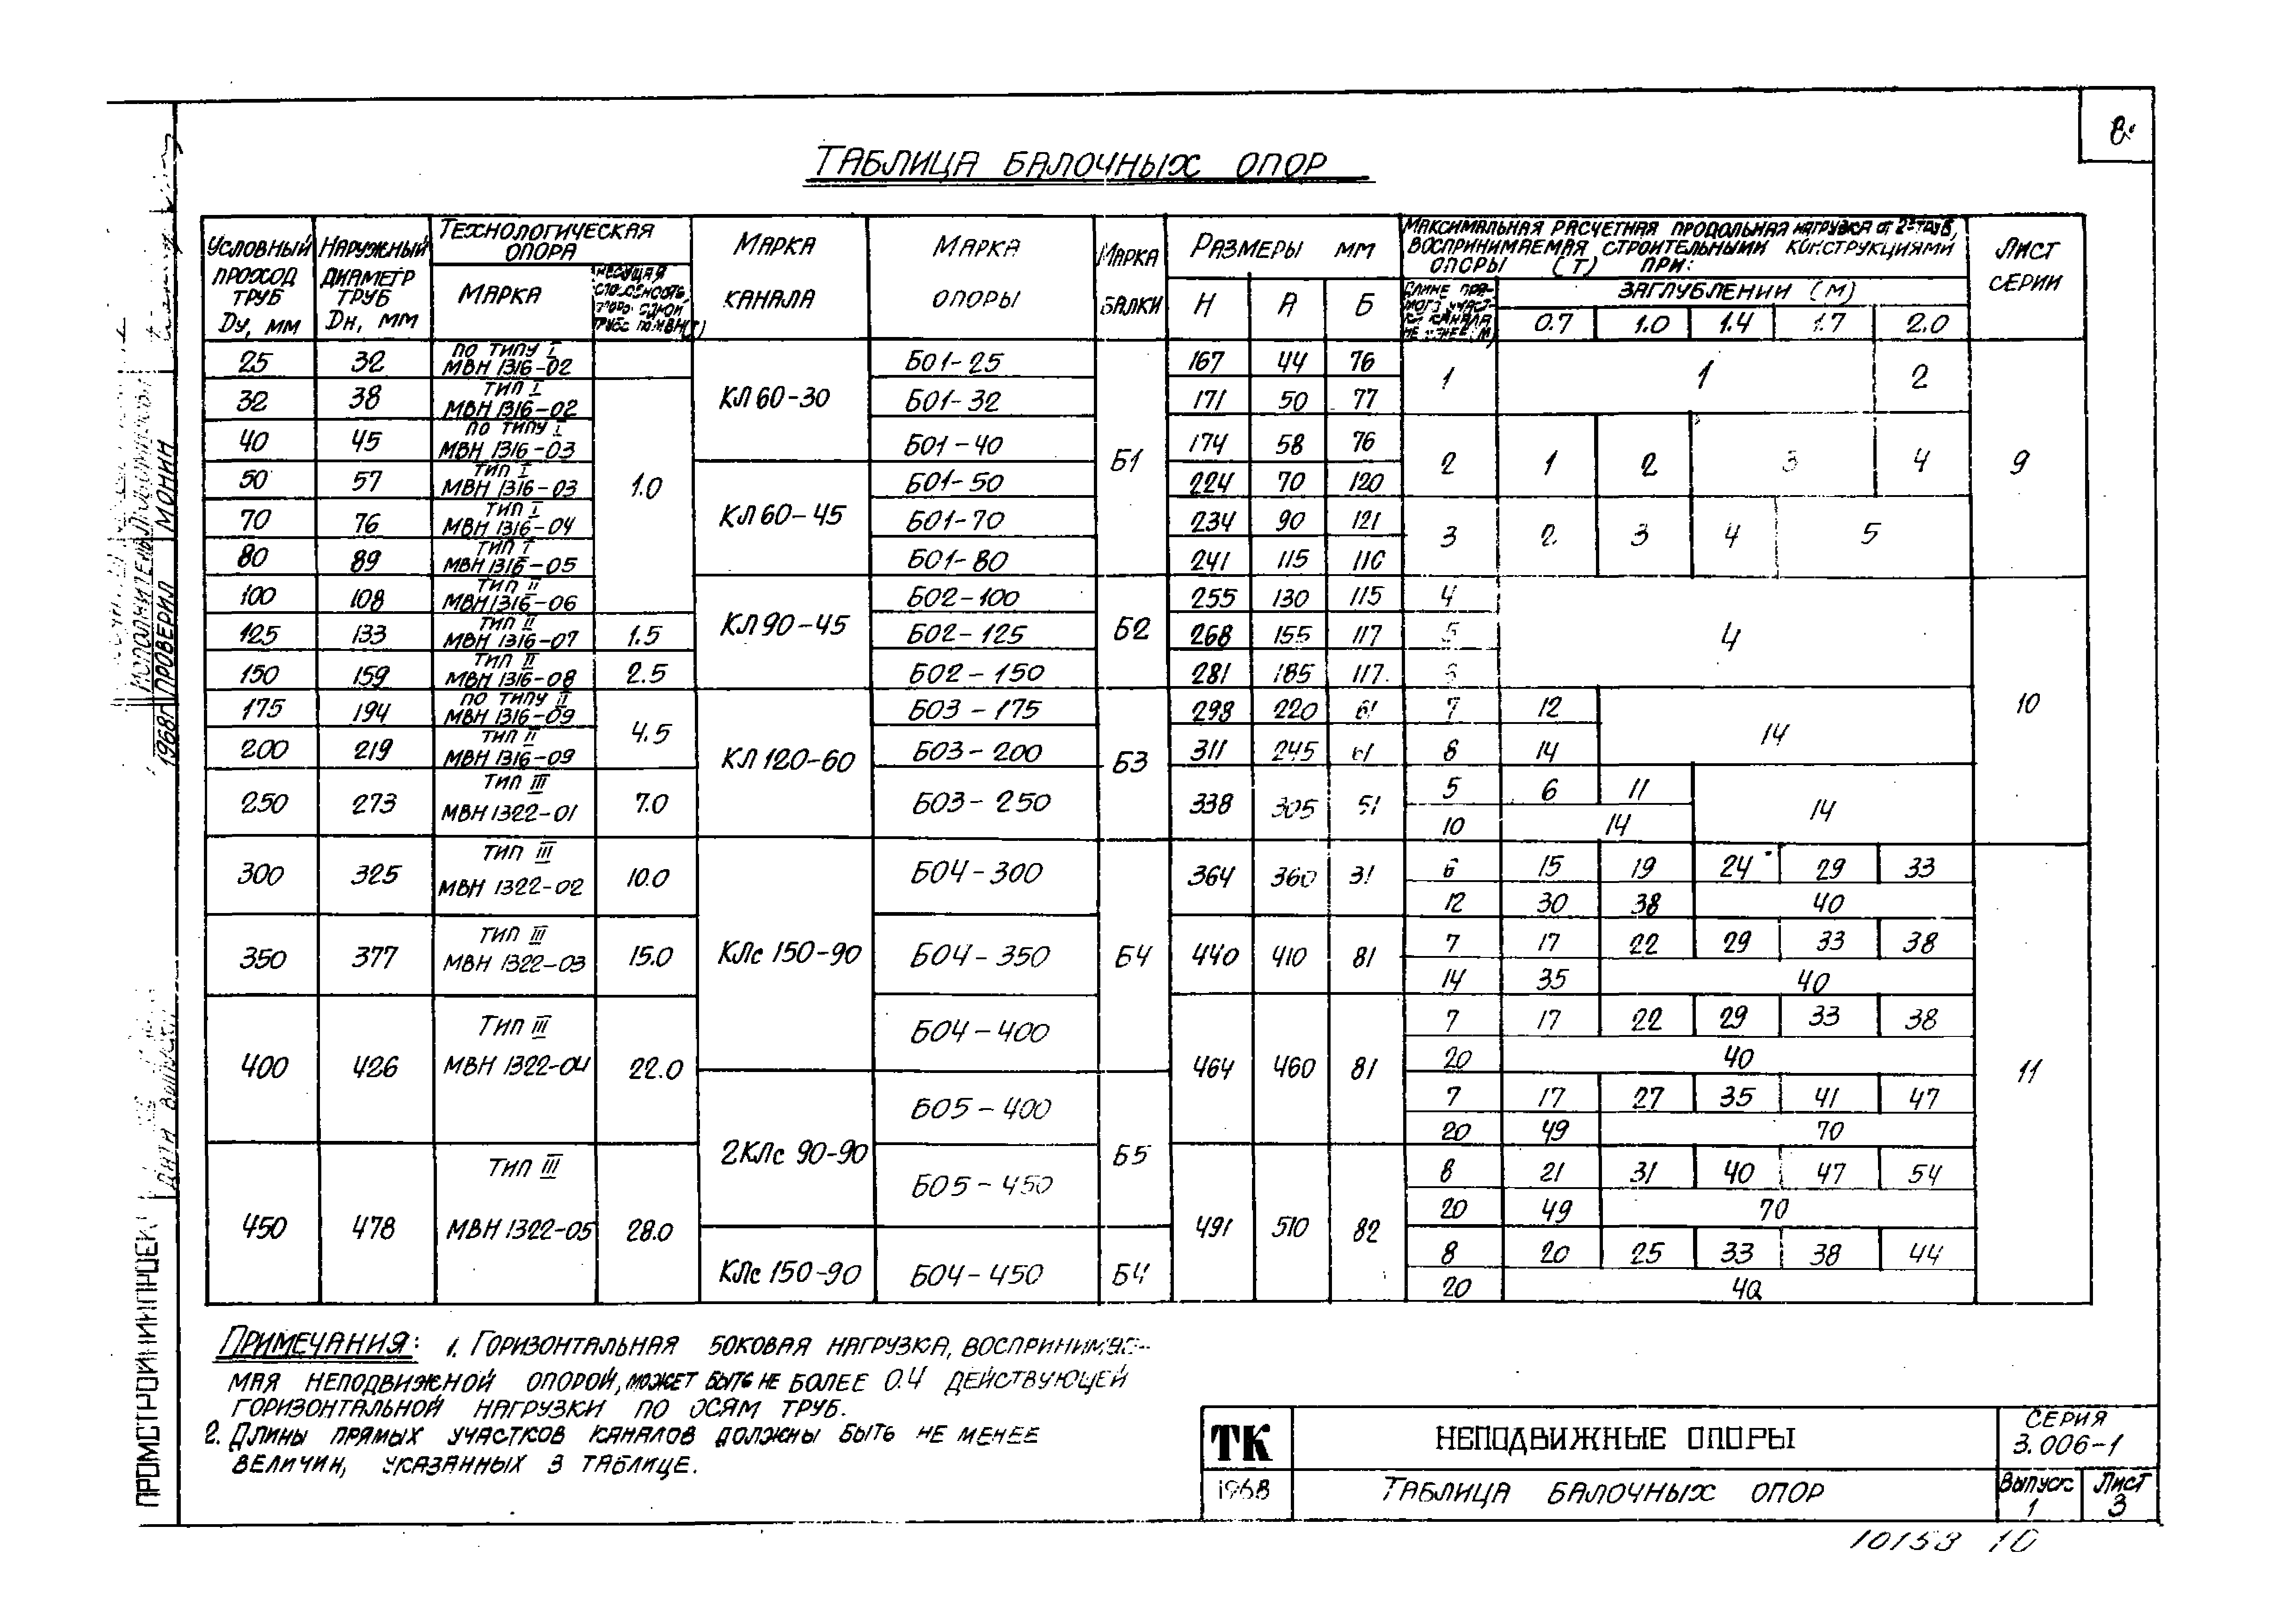 ТАБЛИЦА БАЛОЧНЫХ ОПОР
УСЛОВНЫЙ ПРОХОД ТРУБ Dу, мм
НАРУЖНЫЙ ДИАМЕТР ТРУБ Dн, мм
ТЕХНОЛОГИЧЕСКАЯ ОПОРА
МАРКА
НЕСУЩАЯ СПОСОБНОСТЬ
МАРКА КАНАЛА
МАРКА ОПОРЫ
МАРКА БАЛКИ
РАЗМЕРЫ мм
Н А Б
МАКСИМАЛЬНАЯ РАСЧЕТНАЯ ПРОДОЛЬНАЯ НАГРУЗКА ОТ 2х ТРУБ,
ВОСПРИНИМАЕМАЯ СТРОИТЕЛЬНЫМИ КОНСТРУКЦИЯМИ
ОПОРЫ (Т) ПРИ:
ДЛИНЕ ПРЯМОГО УЧАСТКА КАНАЛА НЕ МЕНЕЕ (М)
ЗАГЛУБЛЕНИИ (М)
0.7 1.0 1.4 1.7 2.0
ЛИСТ СЕРИИ
25 32 ПО ТИПУ I МВН 1316-02 КЛ 60-30 Б01-25 Б1 167 44 76 1 1 2 9
32 38 ТИП I МВН 1316-02 1.0 Б01-32 171 50 77
40 45 ПО ТИПУ I МВН 1316-03 Б01-40 174 58 76 2 1 2 3 4
50 57 ТИП I МВН 1316-03 КЛ 60-45 Б01-50 224 70 120
70 76 ТИП I МВН 1316-04 Б01-70 234 90 121 3 2 3 4 5
80 89 ТИП I МВН 1316-05 Б01-80 241 115 116
100 108 ТИП II МВН 1316-06 КЛ 90-45 Б02-100 Б2 255 130 115 4 4 10
125 133 ТИП II МВН 1316-07 1.5 Б02-125 268 155 117 5
150 159 ТИП II МВН 1316-08 2.5 Б02-150 281 185 117
175 194 ПО ТИПУ II МВН 1316-09 4.5 КЛ 120-60 Б03-175 Б3 298 220 61 7 12 14
200 219 ТИП II МВН 1316-09 Б03-200 311 245 61 8 14
250 273 ТИП III МВН 1322-01 7.0 Б03-250 338 305 51 5 6 11 14
10 14
300 325 ТИП III МВН 1322-02 10.0 КЛс 150-90 Б04-300 Б4 364 360 31 6 15 19 24 29 33 11
12 30 38 40
350 377 ТИП III МВН 1322-03 15.0 Б04-350 440 410 81 7 17 22 29 33 38
14 35 40
400 426 ТИП III МВН 1322-04 22.0 Б04-400 464 460 81 7 17 22 29 33 38
20 40
2КЛс 90-90 Б05-400 Б5 7 17 27 35 41 47
20 49 70
450 478 ТИП III МВН 1322-05 28.0 Б05-450 491 510 82 8 21 31 40 47 54
20 49 70
КЛс 150-90 Б04-450 Б4 8 20 25 33 38 44
20 40
ПРИМЕЧАНИЯ: 1. ГОРИЗОНТАЛЬНАЯ БОКОВАЯ НАГРУЗКА, ВОСПРИНИМАЕ-
МАЯ НЕПОДВИЖНОЙ ОПОРОЙ, МОЖЕТ БЫТЬ НЕ БОЛЕЕ 0.4 ДЕЙСТВУЮЩЕЙ
ГОРИЗОНТАЛЬНОЙ НАГРУЗКИ ПО ОСЯМ ТРУБ.
2. ДЛИНЫ ПРЯМЫХ УЧАСТКОВ КАНАЛОВ ДОЛЖНЫ БЫТЬ НЕ МЕНЕЕ
ВЕЛИЧИН, УКАЗАННЫХ В ТАБЛИЦЕ.
ТК
1968
НЕПОДВИЖНЫЕ ОПОРЫ
ТАБЛИЦА БАЛОЧНЫХ ОПОР
СЕРИЯ
3.006-1
ВЫПУСК 1
ЛИСТ 3
10153 10
ПРОМСТРОЙНИИПРОЕКТ
ДАТА ВЫПУСКА
1968г
ИСПОЛНИТЕЛЬ
ПРОВЕРИЛ МОНИН